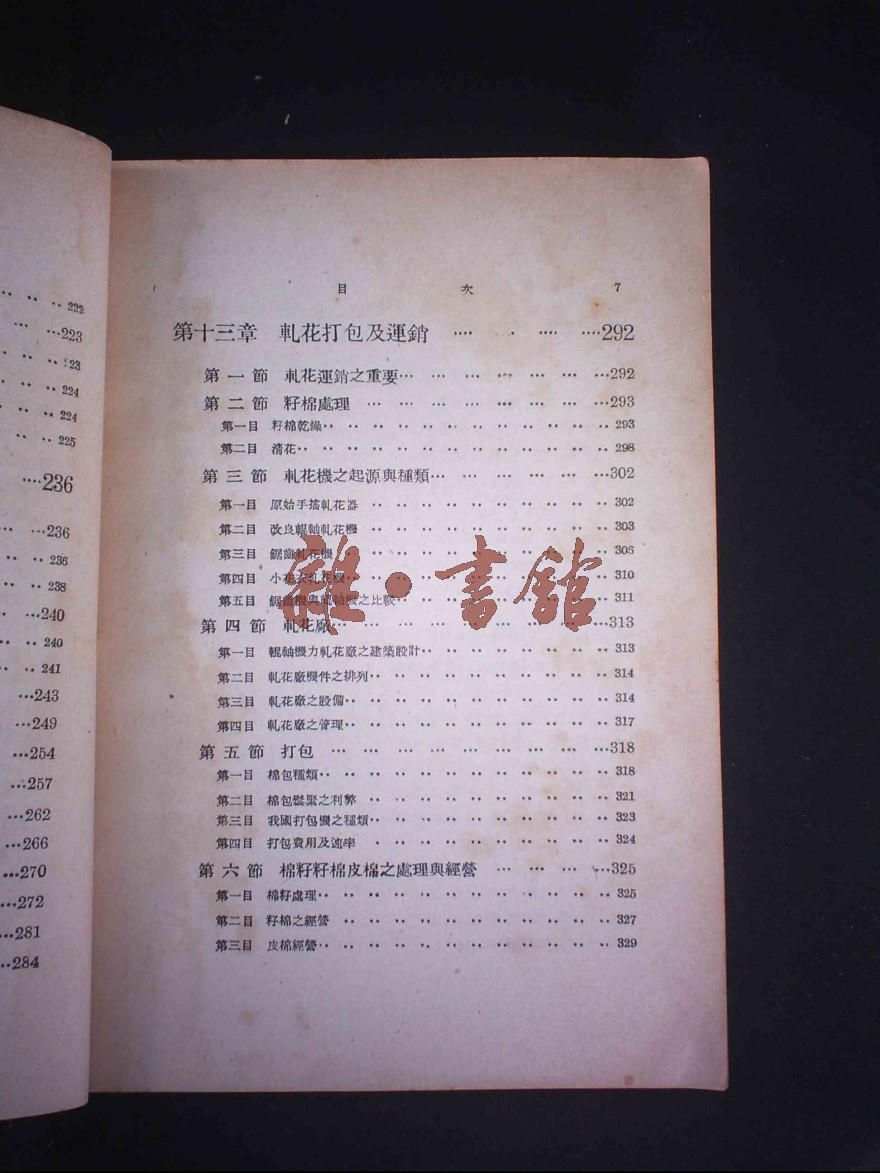 222
223
223
224
224
225
236
236
236
238
240
240
241
243
249
254
257
262
266
270
272
281
284
目 次 7
第十三章 軋花打包及運銷 292
第一節 軋花運銷之重要 292
第二節 籽棉處理 293
第一目 籽棉乾燥 293
第二目 清花 298
第三節 軋花機之起源與種類 302
第一目 原始手搖軋花器 302
第二目 改良輥軸軋花機 303
第三目 鋸齒軋花機 306
第四目 小花衣軋花機 310
第五目 鋸齒機與輥軸機之比較 311
第四節 軋花廠 313
第一目 輥軸機力軋花廠之建築設計 313
第二目 軋花廠機件之排列 314
第三目 軋花廠之設備 314
第四目 軋花廠之管理 317
第五節 打包 318
第一目 棉包種類 318
第二目 棉包鬆緊之利弊 321
第三目 我國打包機之種類 323
第四目 打包費用及速率 324
第六節 棉籽籽棉皮棉之處理與經營 325
第一目 棉籽處理 325
第二目 籽棉之經營 327
第三目 皮棉經營 329
雜·書館